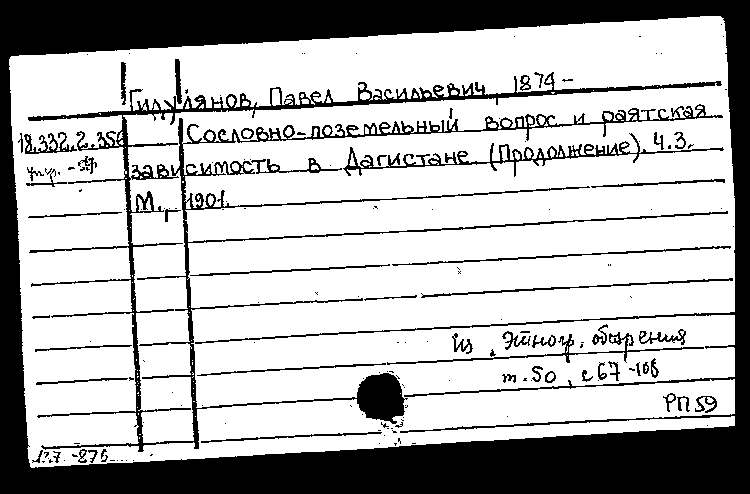 Гидулянов, Павел Васильевич, 1874-
18.332.2.356 Сословно-поземельный вопрос и раятская
зависимость в Дагистане (Продолжение). Ч.3.
М., 1901.
Из Этногр. обозрения
т. 50, с 67-108
РП 59
-876